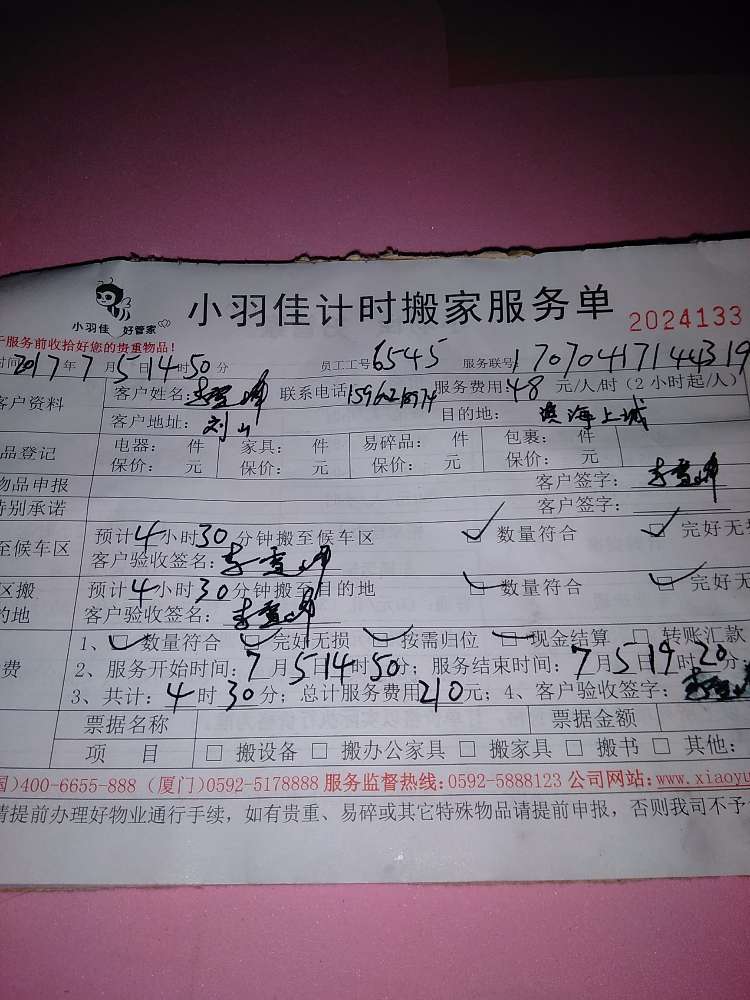 小羽佳 好管家
小羽佳计时搬家服务单 2024133
服务前收拾好您的贵重物品!
时间2017年7月5日14时50分 员工工号6545 服务联号170704171443 19
客户资料 客户姓名: 联系电话 服务费用:48 元/人/时(2小时起/人)
客户地址:刘山 目的地: 滨海上城
品登记 电器: 件 家具: 件 易碎品: 件 包裹: 件
保价: 元 保价: 元 保价: 元 保价: 元
物品申报 客户签字:
特别承诺 客户签字:
至候车区 预计4小时30分钟搬至候车区 数量符合 完好无损
客户验收签名:
区搬 预计4小时30分钟搬至目的地 数量符合 完好无
的地 客户验收签名:
费 1、数量符合 完好无损 按需归位 现金结算 转账汇款
2、服务开始时间:7月5日14时50分;服务结束时间:7月5日19时20分;
3、共计:4时30分;总计服务费用210元;4、客户验收签字:
票据名称 票据金额
项 目 □ 搬设备 □ 搬办公家具 □ 搬家具 □ 搬书 □ 其他:
国)400-6655-888 (厦门)0592-5178888 服务监督热线:0592-5888123 公司网站:www.xiaoyu
请提前办理好物业通行手续,如有贵重、易碎或其它特殊物品请提前申报,否则我司不予